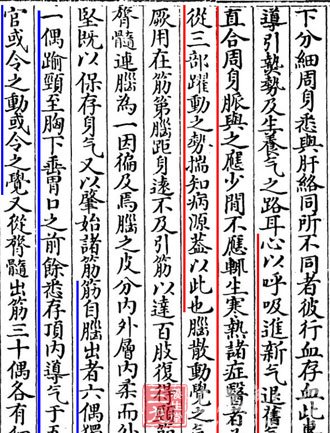 下分細周身悉與肝絡同所不同者彼行血存血此專
導引𤍠勢及生養气之路耳心以呼吸進新气退舊气
直合周身脈與之應少間不應輒生寒熱諸症醫者
從三部躍動之勢揣知病源蓋以此也腦散動覺之气
厥用在筋第腦距身遠不及引筋以達百肢復得
脊髓連腦為一因徧及焉腦之皮分內外層內柔而外
堅既以保存身气又以肇始諸筋筋自腦出者六偶獨
一偶踰頸至胸下垂胃口之前餘悉存頂內導气于五
官或令之動或令之覺又從脊髓出筋三十偶各有